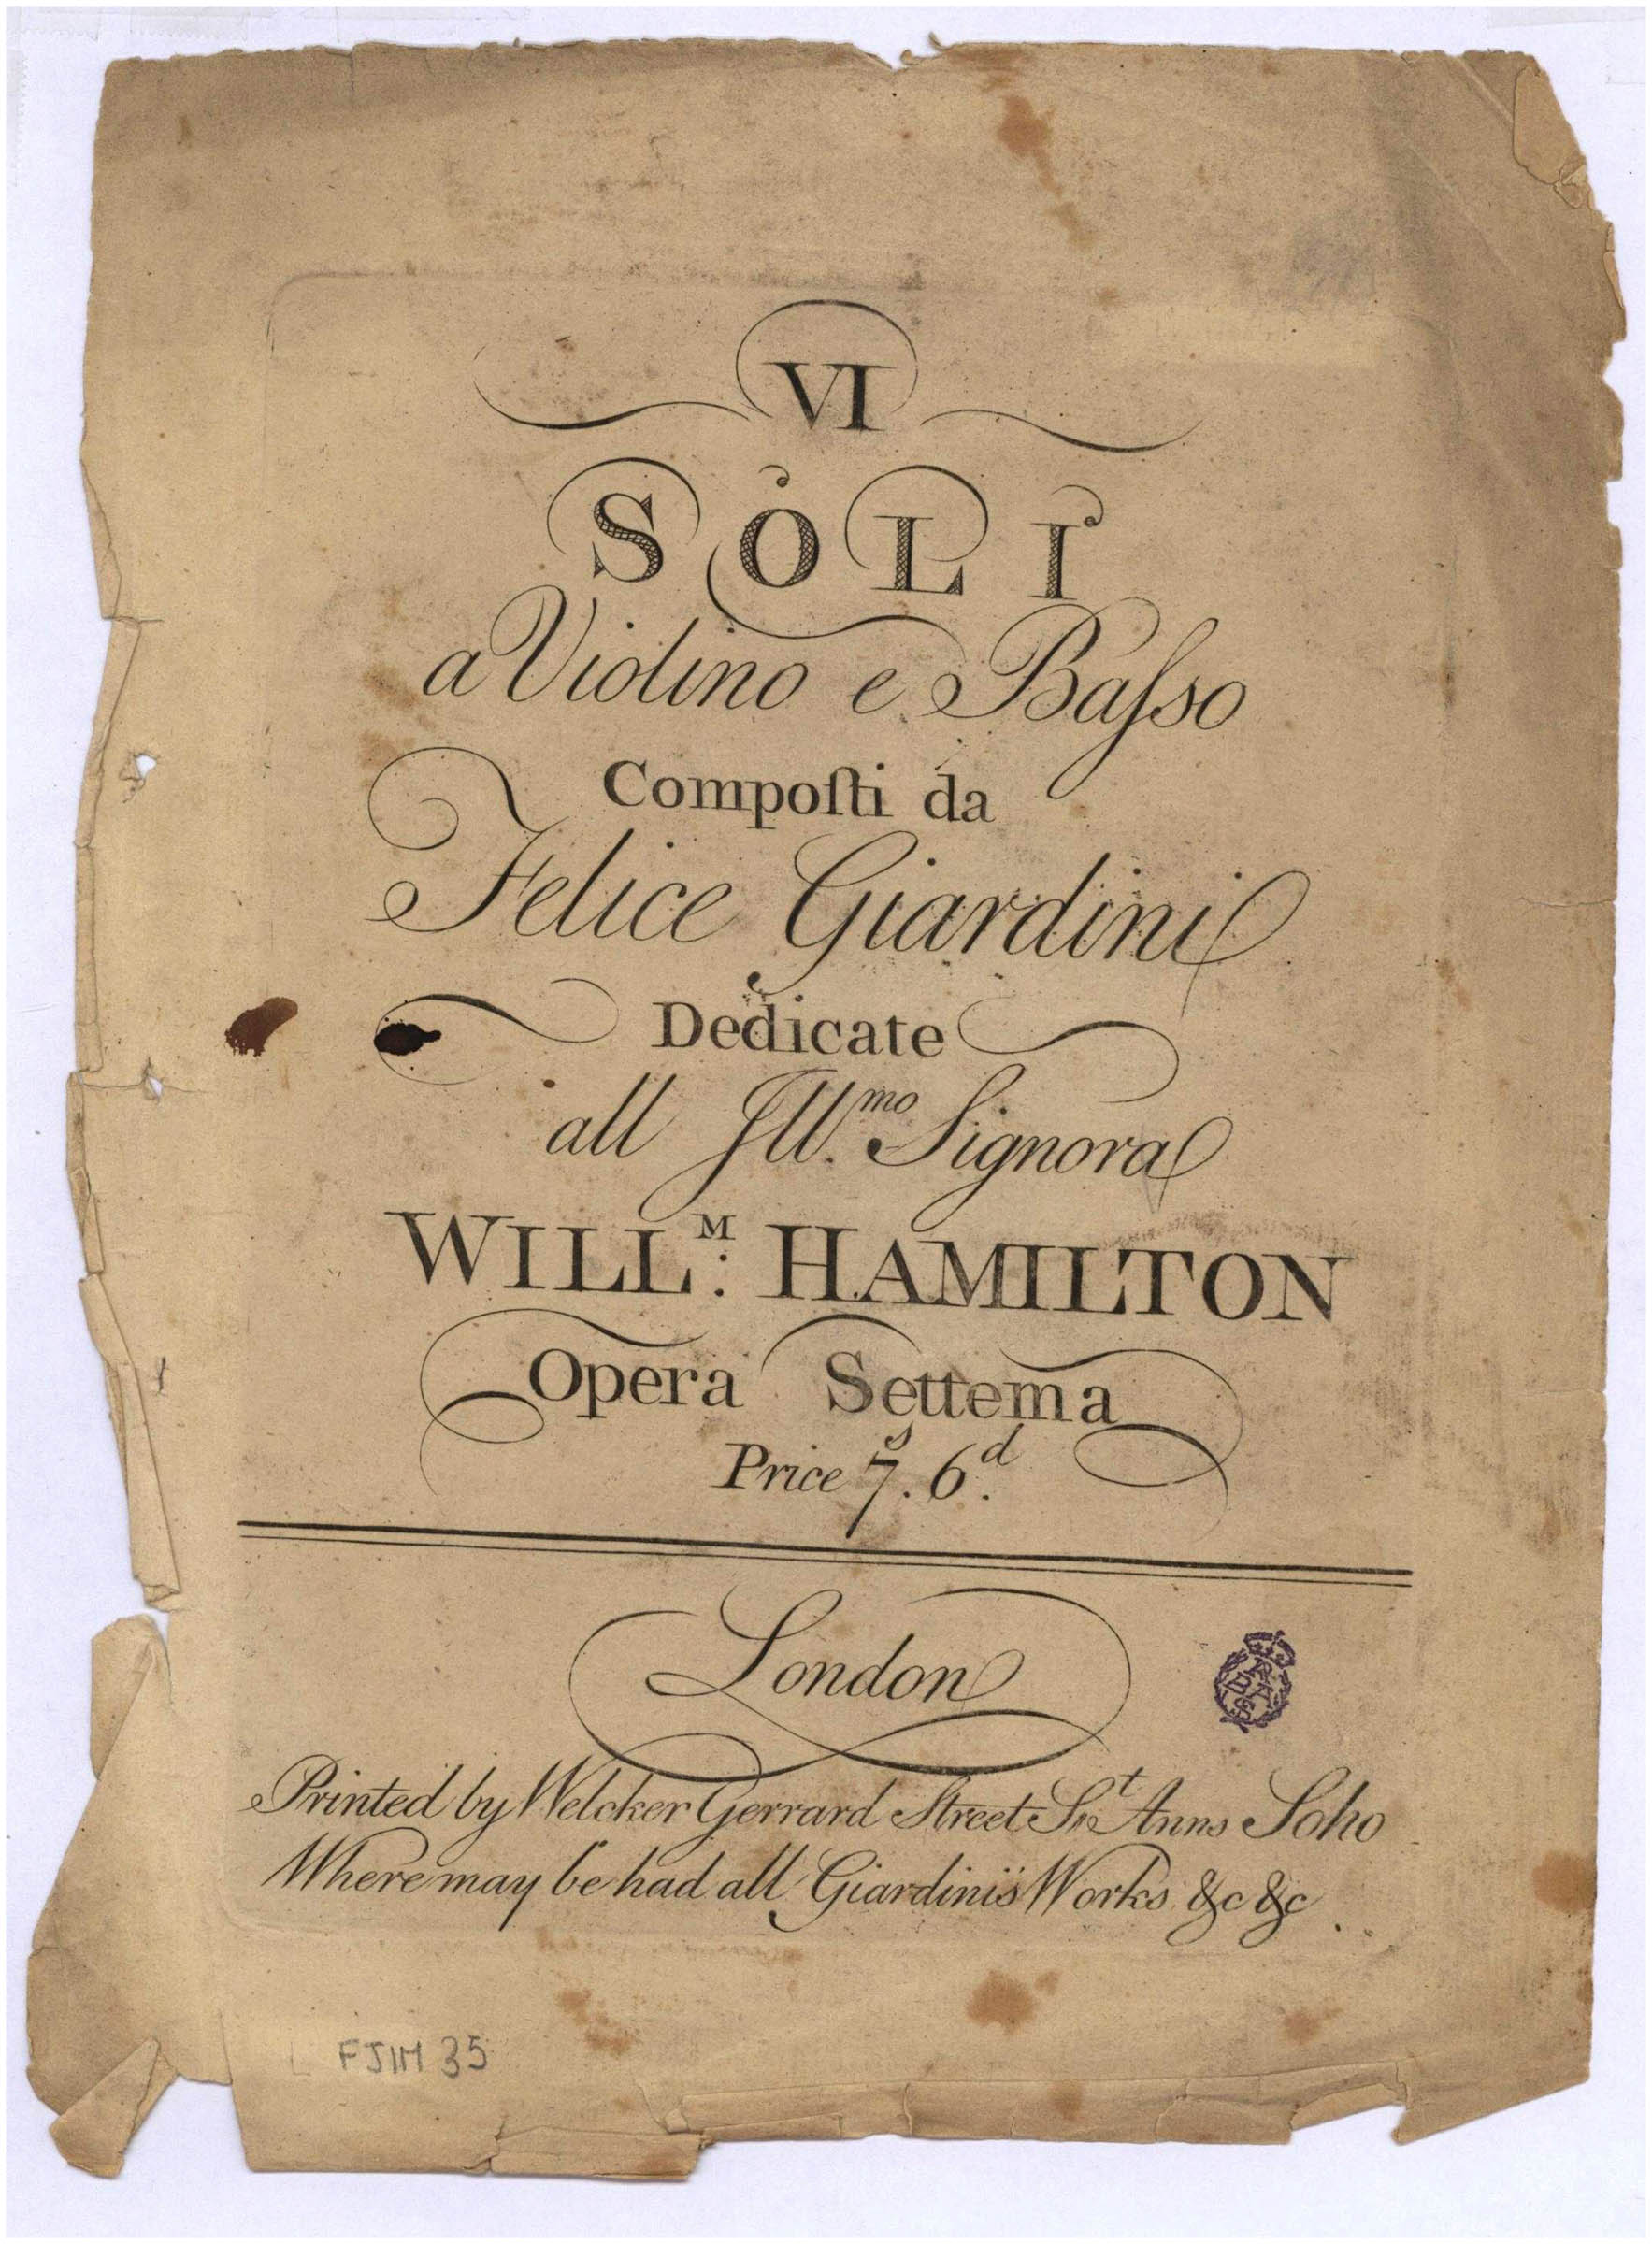 VI
SOLI
a Violino e Baſso
Compoſti da
Felice Giardini
Dedicate
all Ill.mo Signora
WILL.M HAMILTON
Opera Settema
Price 7.s 6.d
London
Printed by Welcker Gerrard Street St. Anns Soho
Where may be had all Giardini's Works &c &c
FJIM 35